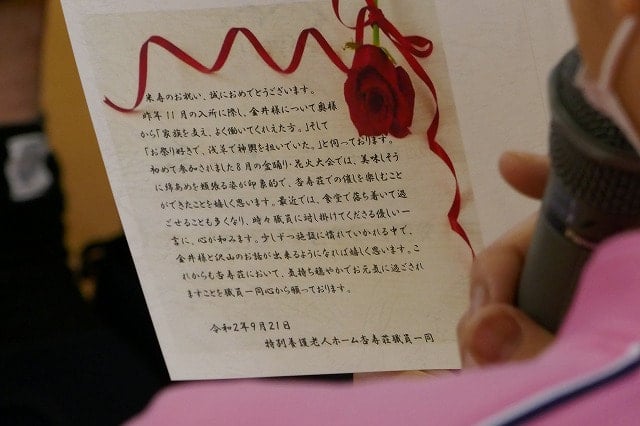 米寿のお祝い、誠におめでとうございます。
昨年11月の入所に際し、金井様について奥様
から「家族を支え、よく働いてくれた方。」そして
「お祭り好きで、浅草で神輿を担いでいた。」と伺っております。
初めて参加されました8月の盆踊り・花火大会では、美味しそう
に綿あめを頬張る姿が印象的で、杏寿荘での催しを楽しむこと
ができたことを嬉しく思います。最近では、食堂で落ち着いて過
ごせることも多くなり、時々職員に対し掛けてくださる優しい一
言に、心が和みます。少しずつ施設に慣れていかれる中で、
金井様と沢山のお話が出来るようになれば嬉しく思います。こ
れからも杏寿荘において、気持ち穏やかでお元気に過ごされ
ますことを職員一同心から願っております。
令和2年9月21日
特別養護老人ホーム杏寿荘職員一同